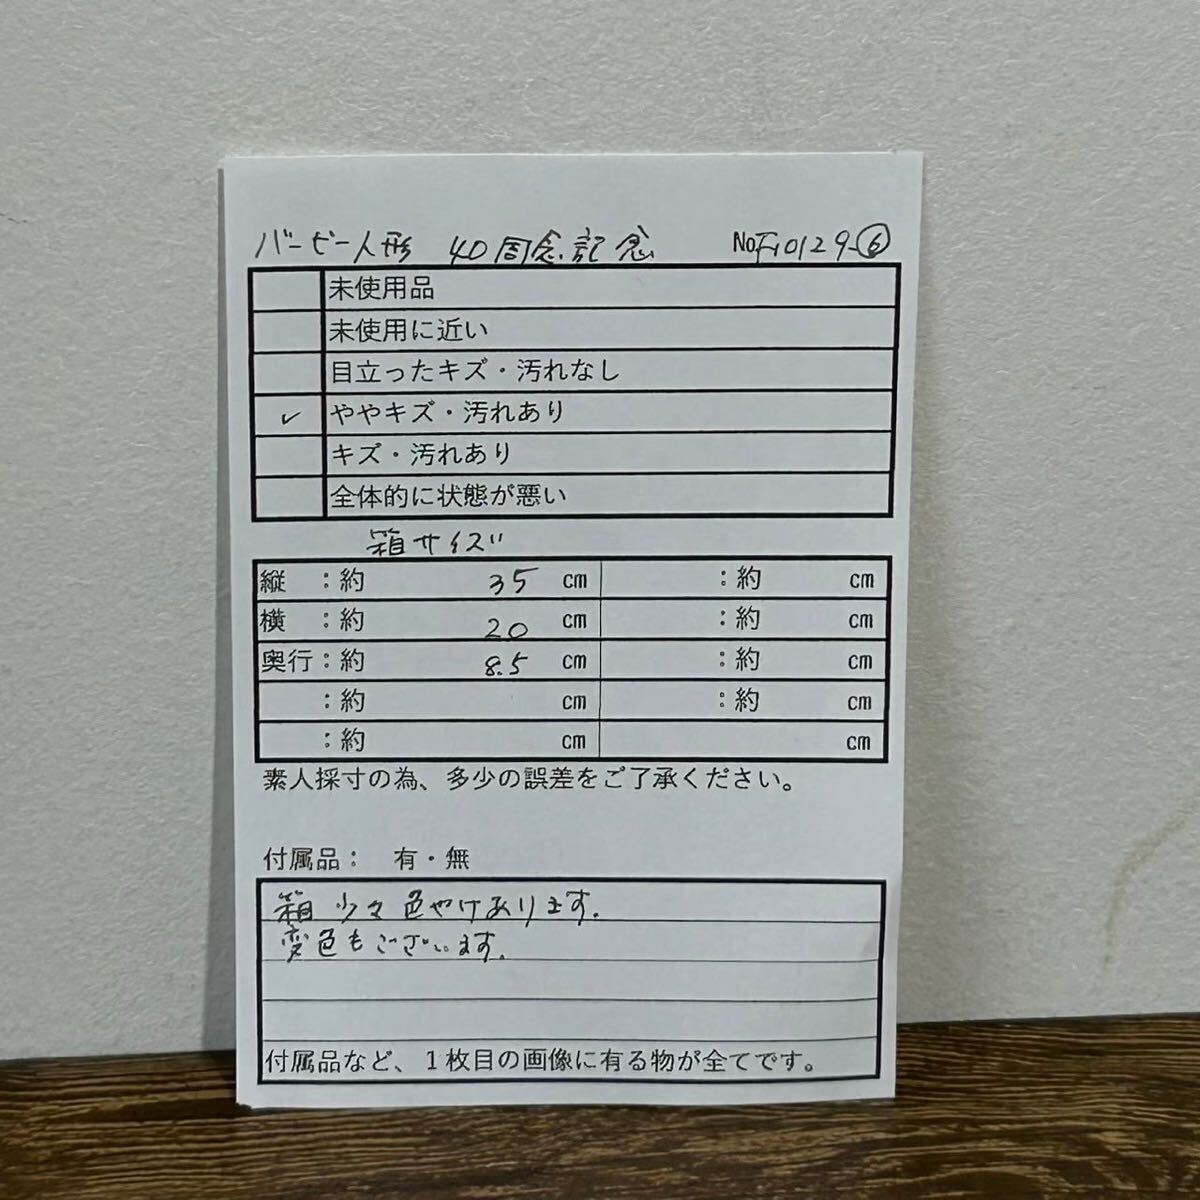 バービー人形 40周念記念 No.F10129-⑥
未使用品
未使用に近い
目立ったキズ・汚れなし
✓ ややキズ・汚れあり
キズ・汚れあり
全体的に状態が悪い
箱サイズ
縦 ：約 35 cm ：約 cm
横 ：約 20 cm ：約 cm
奥行：約 8.5 cm ：約 cm
：約 cm ：約 cm
：約 cm cm
素人採寸の為、多少の誤差をご了承ください。
付属品： 有・無
箱 少々色やけあります。
変色もございます。
付属品など、１枚目の画像に有る物が全てです。